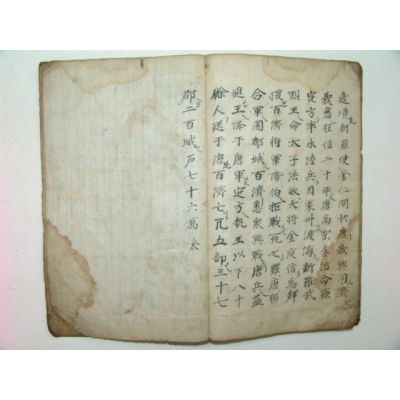 邊境新羅使金仁問於唐欲與同濟
義慈在位二十年唐高宗李治命蘇
定方率水陸兵自萊州渡海新羅武
烈王命太子法敏大將金庾信爲
援百濟將軍階伯拒戰死之羅唐聯
合軍圍都城百濟悉衆與戰唐兵
進王濟于唐軍定方執王以下八十
餘人送于唐百濟七凡五部三十七
郡二百城戶七十六萬 太